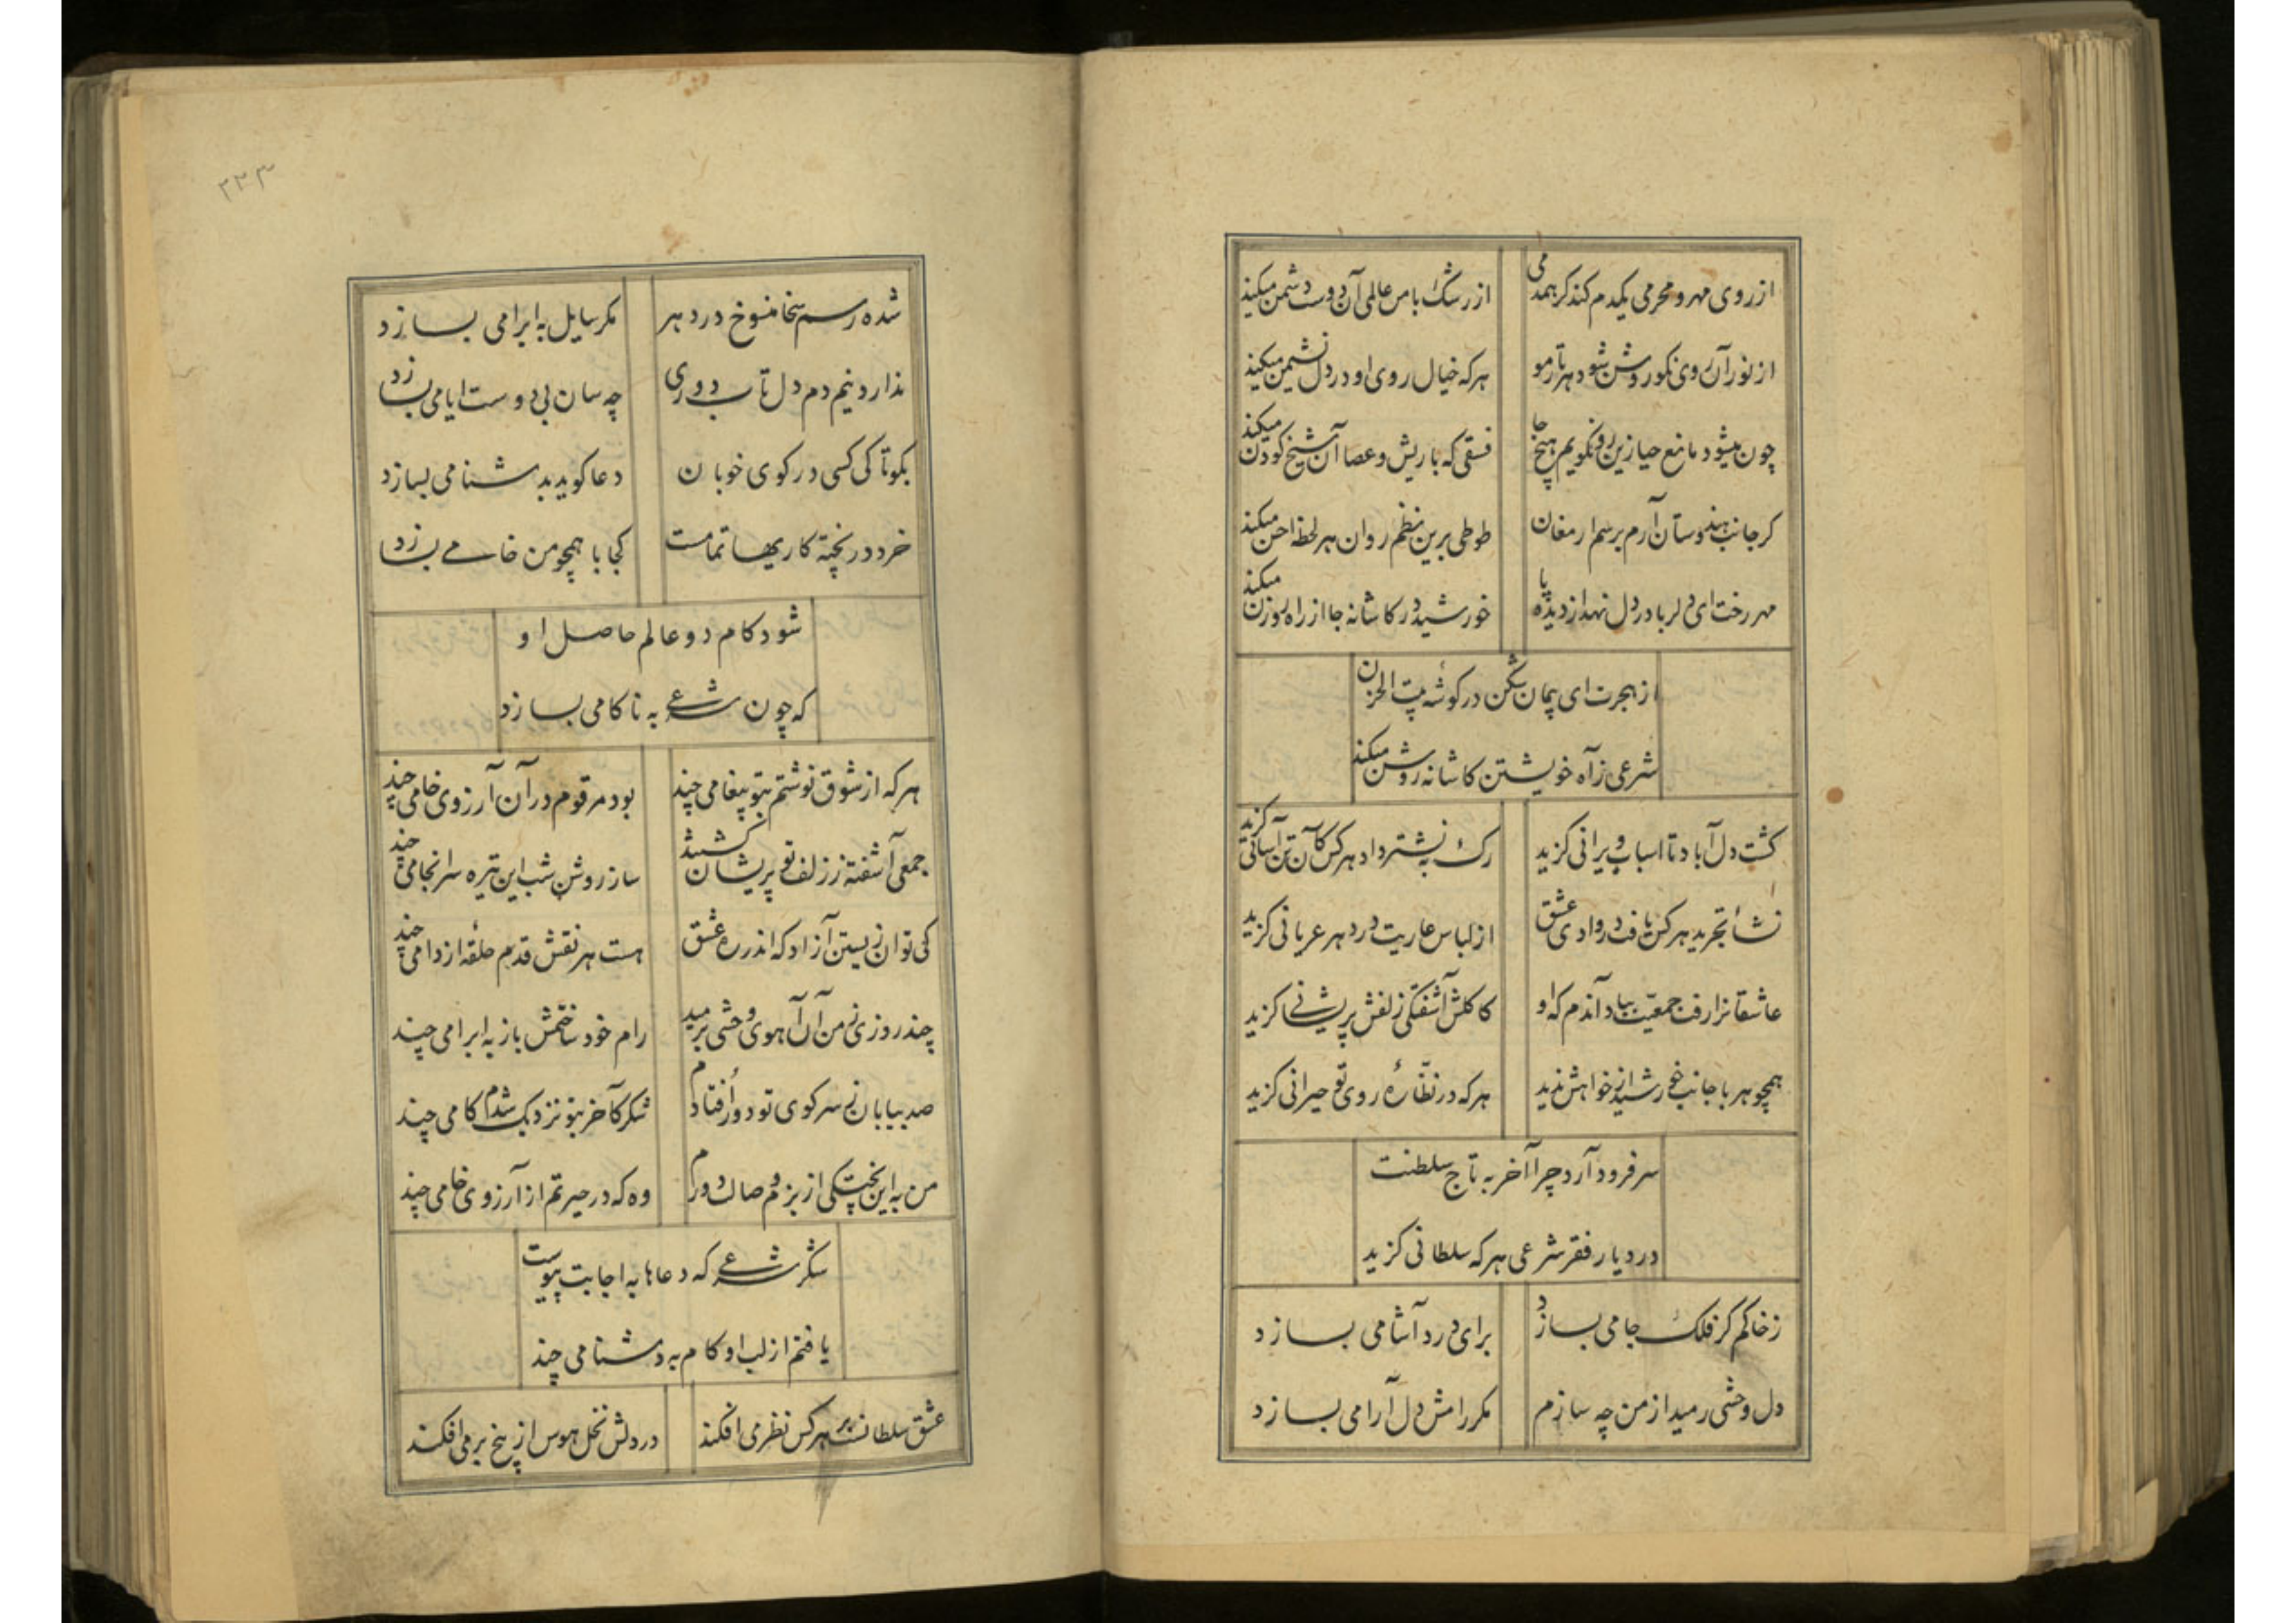 از روی مهر و محرمی یکدم کند کر همدمی
از رشک با من عالمی آن دوست دشمن میکند
از نور آن روی نکو روشن شود هر تار مو
هرکه خیال روی او در دل نشیمن میکند
چون میشود مانع حیا زین رو نکویم هیچ جا
فسقی که با ریش و عصا آن شیخ کودن میکند
کر جانب هندوستان آرم برسم ارمغان
طوطی برین نظم روان هر لحظه احسن میکند
مهر رخت ای دلربا در دل نهد از دیده پا
خورشید در کاشانه جا از راه روزن میکند
از هجرت ای پیمان شکن در کوشه بیت الحزن
شرعی ز آه خویشتن کاشانه روشن میکند
کشت دل آباد تا اسباب ویرانی کزید
رک به نشتر داد هر کس کان تن آسانی کزید
نشأ تجرید هر کس یافت در وادی عشق
از لباس عاریت در دهر عریانی کزید
عاشقانرا رفت جمعیت بباد آندم که او
کاکلش آشفتکی زلفش پریشانی کزید
همچو هر با جانب خورشید از خواهش ندید
هرکه در نظّارهٔ روی تو حیرانی کزید
سر فرود آرد چرا آخر به تاج سلطنت
در دیار فقر شرعی هرکه سلطانی کزید
ز خاکم کر فلک جامی بسازد
برای درد آشامی بسازد
دل وحشی رمید از من چه سازم
مکر رامش دل آرامی بسازد
۲۲۳
شده رسم سخا منسوخ در دهر
مکر سایل به ابرامی بسازد
ندارد نیم دم دل تاب دوری
چه سان بی دوست ایامی بسازد
بکو تا کی کسی در کوی خوبان
دعا کوید بدشنامی بسازد
خرد در پخته کاریها تمامست
کجا با همچو من خامی بسازد
شود کام دو عالم حاصل او
که چون شرعی به ناکامی بسازد
هرکه از شوق نوشتم بتو پیغامی چند
بود مرقوم در آن آرزوی خامی چند
جمعی آشفته ز زلف تو پریشان کشتند
ساز روشن شب این تیره سرانجامی چند
کی توان زیستن آزاد که اندر ره عشق
هست هر نقش قدم حلقه از دامی چند
چند روزی ز من آن آهوی وحشی برمید
رام خود ساختمش باز به ابرامی چند
صد بیابان ز سر کوی تو دور اُفتادم
شکر کآخر بتو نزدیک شدم کامی چند
من به این پختکی از بزم وصالت دورم
وه که در حیرتم از آرزوی خامی چند
شکر شرعی که دعاها به اجابت پیوست
یافتم از لب او کام به دشنامی چند
عشق سلطانست بر هر کس نظر می افکند
در دلش نخل هوس از بیخ بر می افکند